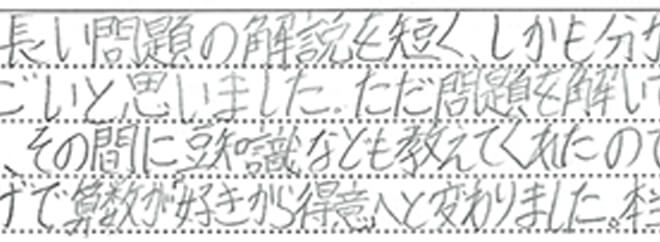 長い問題の解説を短く、しかも分か
ごいと思いました。ただ問題を解いて
、その間に豆知識なども教えてくれたので
げで算数が好きから得意へと変わりました。本当